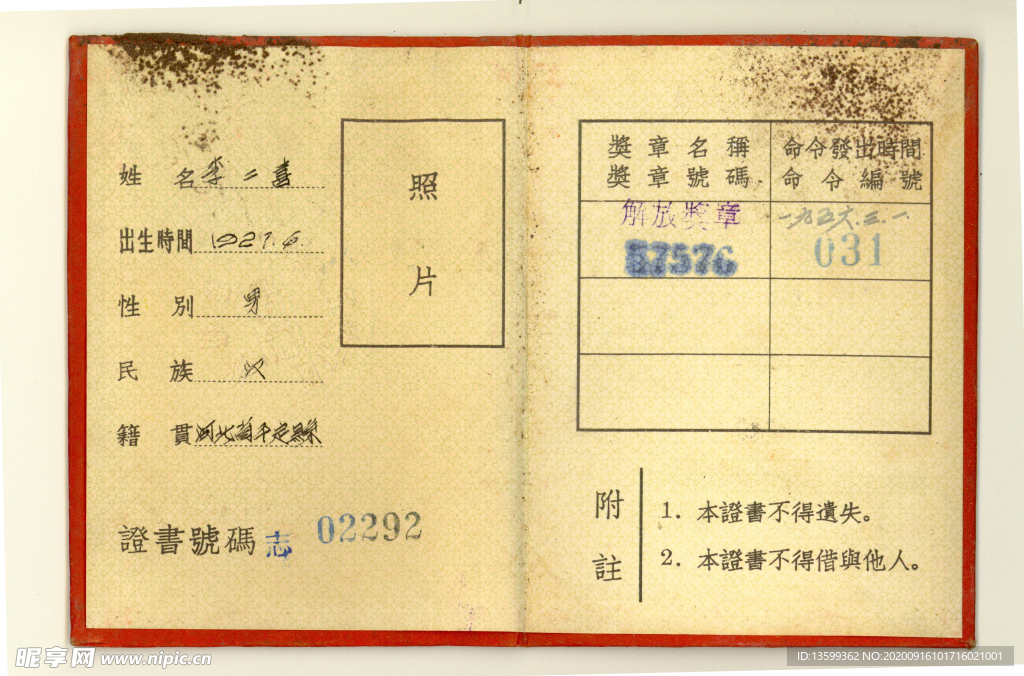 姓 名 李二喜
出生時間 1927.6.
性 別 男
民 族 汉
籍 貫 河北省平定縣
證書號碼 志 02292
照
片
獎章名稱 命令發出時間
獎章號碼 命令編號
解放獎章 一九五六.三.一.
57576 031
附註
1. 本證書不得遺失。
2. 本證書不得借與他人。
昵享网 www.nipic.cn
ID:13599362 NO:20200916101716021001